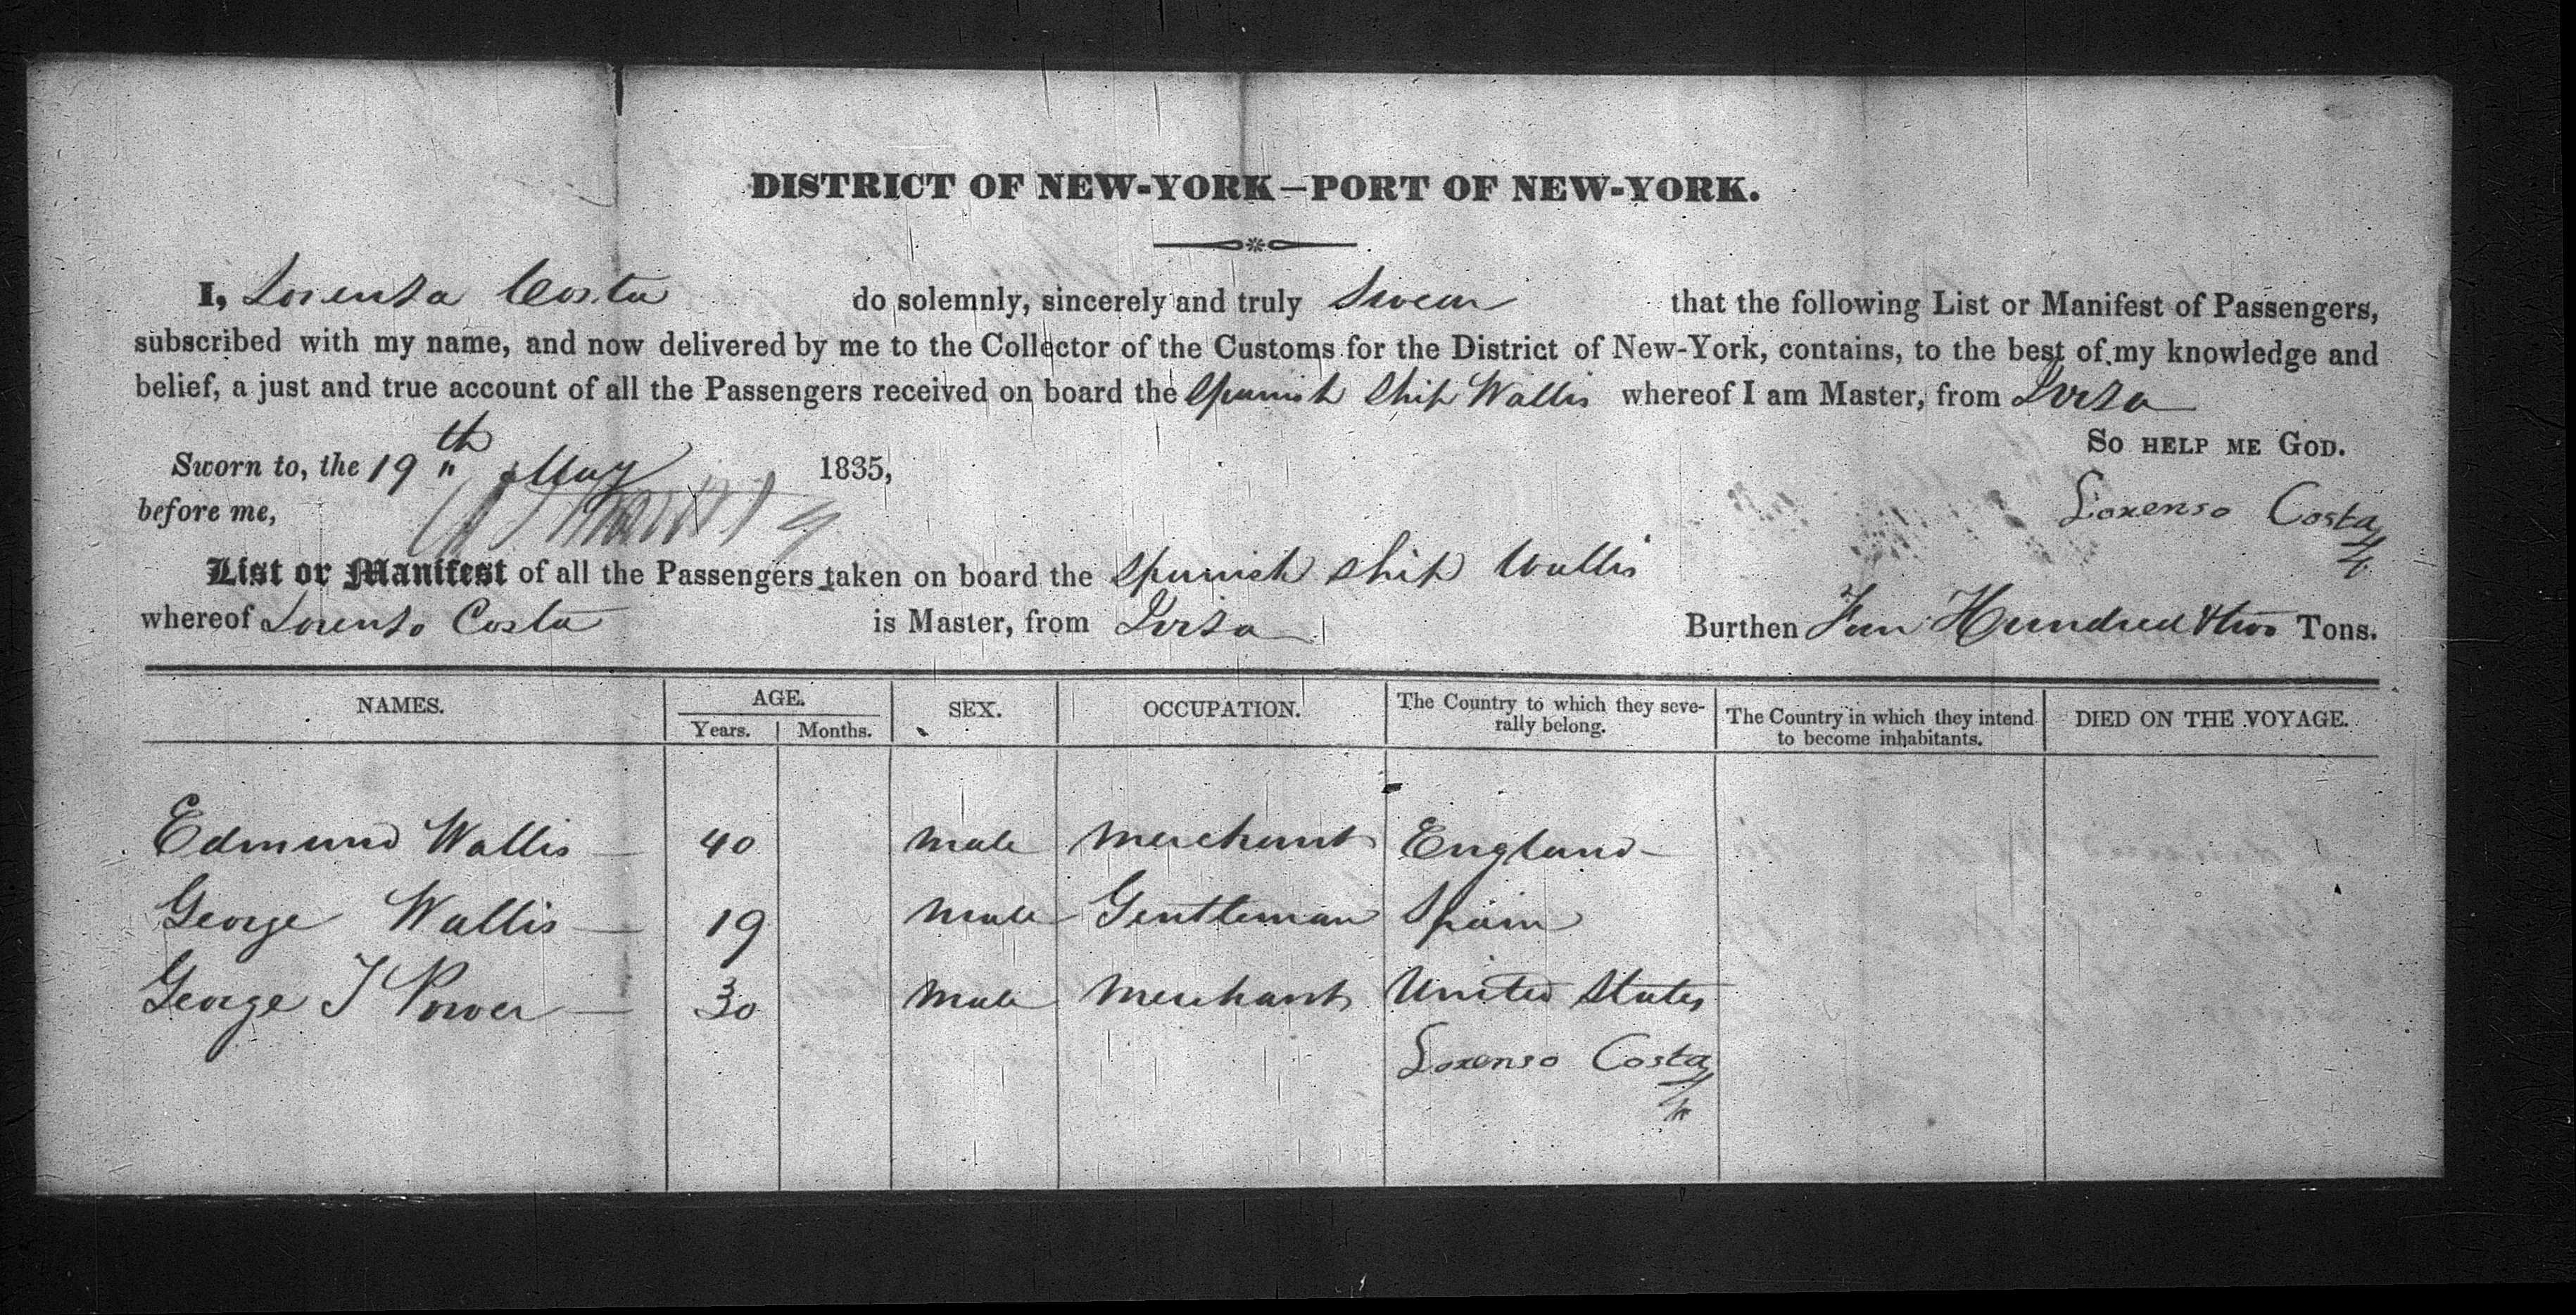 DISTRICT OF NEW-YORK—PORT OF NEW-YORK.
I, Lorenza Costa do solemnly, sincerely and truly Swear that the following List or Manifest of Passengers,
subscribed with my name, and now delivered by me to the Collector of the Customs for the District of New-York, contains, to the best of my knowledge and
belief, a just and true account of all the Passengers received on board the Spanish Ship Wallis whereof I am Master, from Ivisa
So HELP ME GOD.
Sworn to, the 19th May 1835,
Lorenso Costa
before me,
List or Manifest of all the Passengers taken on board the Spanish Ship Wallis
whereof Lorenzo Costa is Master, from Ivisa Burthen Hundred & two Tons.
NAMES. AGE. SEX. OCCUPATION. The Country to which they seve- The Country in which they intend DIED ON THE VOYAGE.
Years. Months. rally belong. to become inhabitants.
Edmund Wallis — 40 male merchant England —
George Wallis — 19 male Gentleman Spain
George T Power — 30 male merchant United States
Lorenso Costa